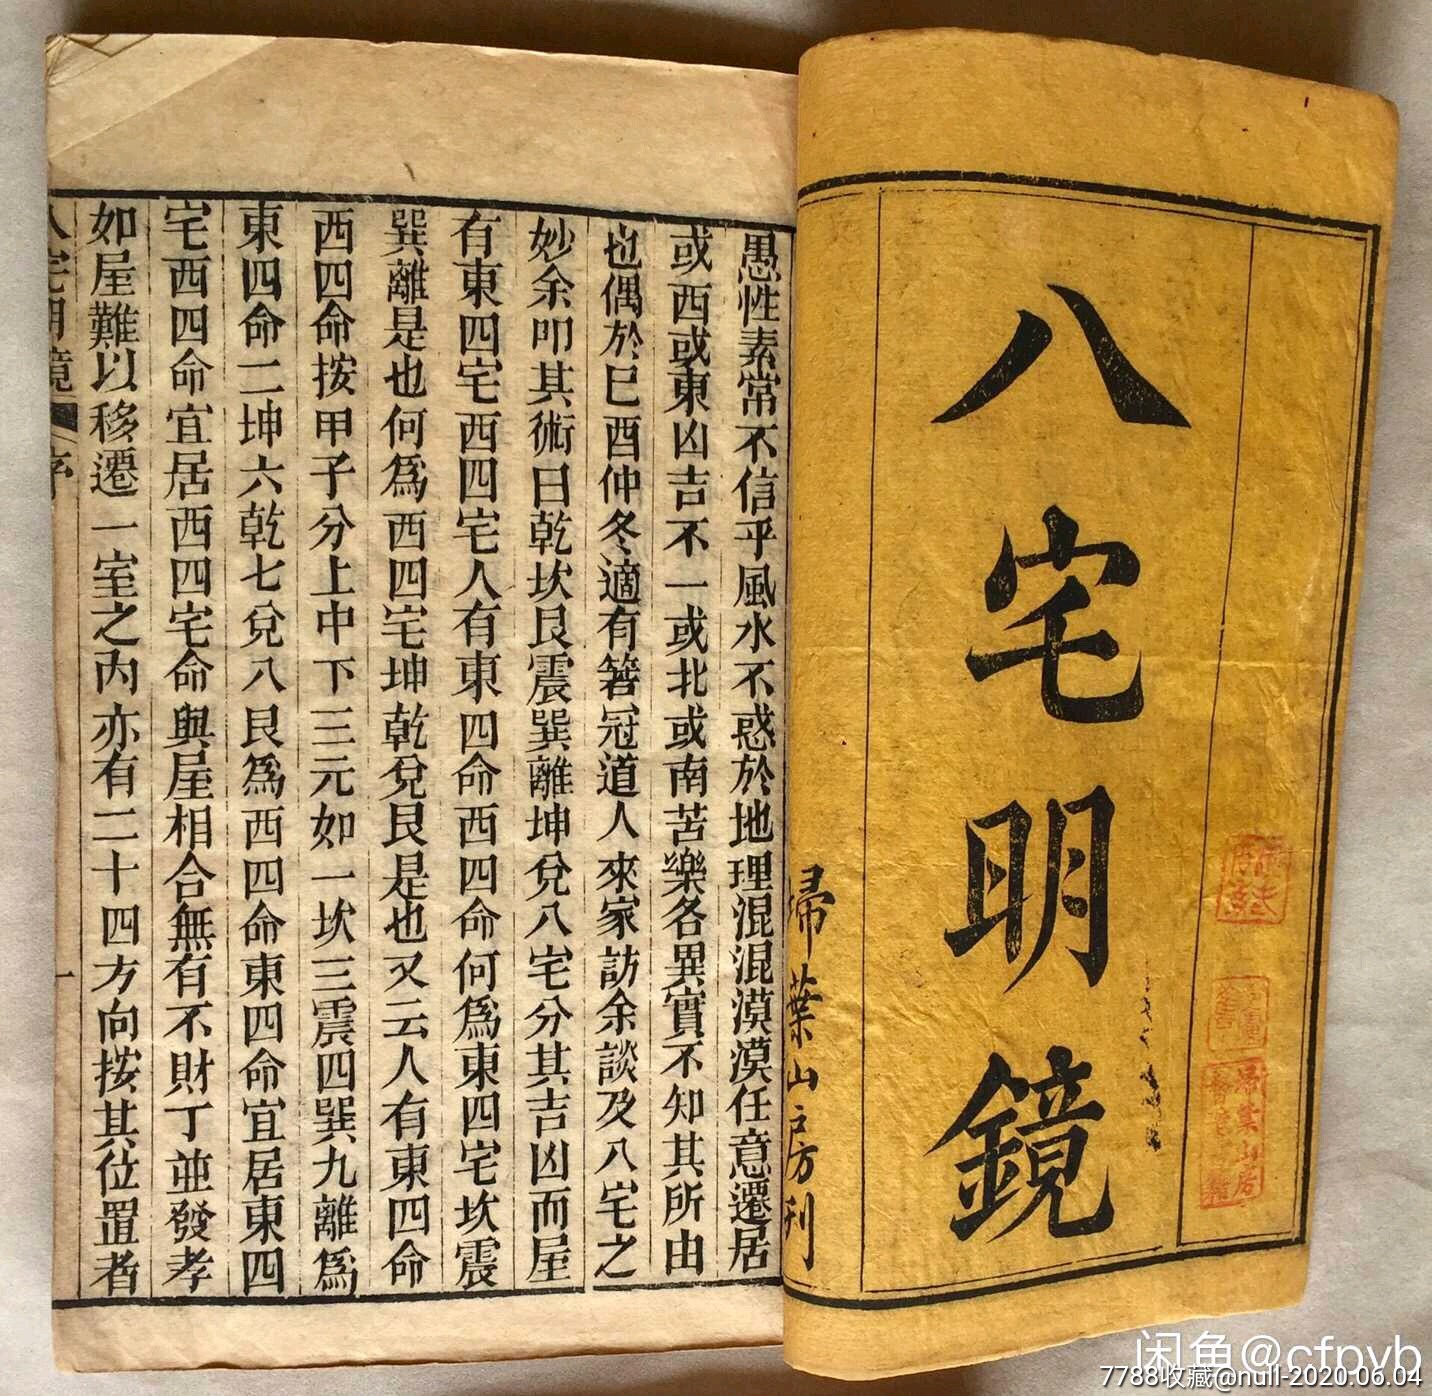 八宅明鏡
掃葉山房刊
愚性素常不信乎風水不惑於地理混混漠漠任意遷居
或西或東凶吉不一或北或南苦樂各異實不知其所由
也偶於巳酉仲冬適有箬冠道人來家訪余談及八宅之
妙余叩其術曰乾坎艮震巽離坤兌八宅分其吉凶而屋
有東四宅西四宅人有東四命西四命何爲東四宅坎震
巽離是也何爲西四宅坤乾兌艮是也又云人有東四命
西四命按甲子分上中下三元如一坎三震四巽九離爲
東四命二坤六乾七兌八艮爲西四命東四命宜居東四
宅西四命宜居西四宅命與屋相合無有不財丁並發孝
如屋難以移遷一室之內亦有二十四方向按其位置者
八宅明鏡 序 一
闲鱼@cfpvb
7788收藏@null-2020.06.04